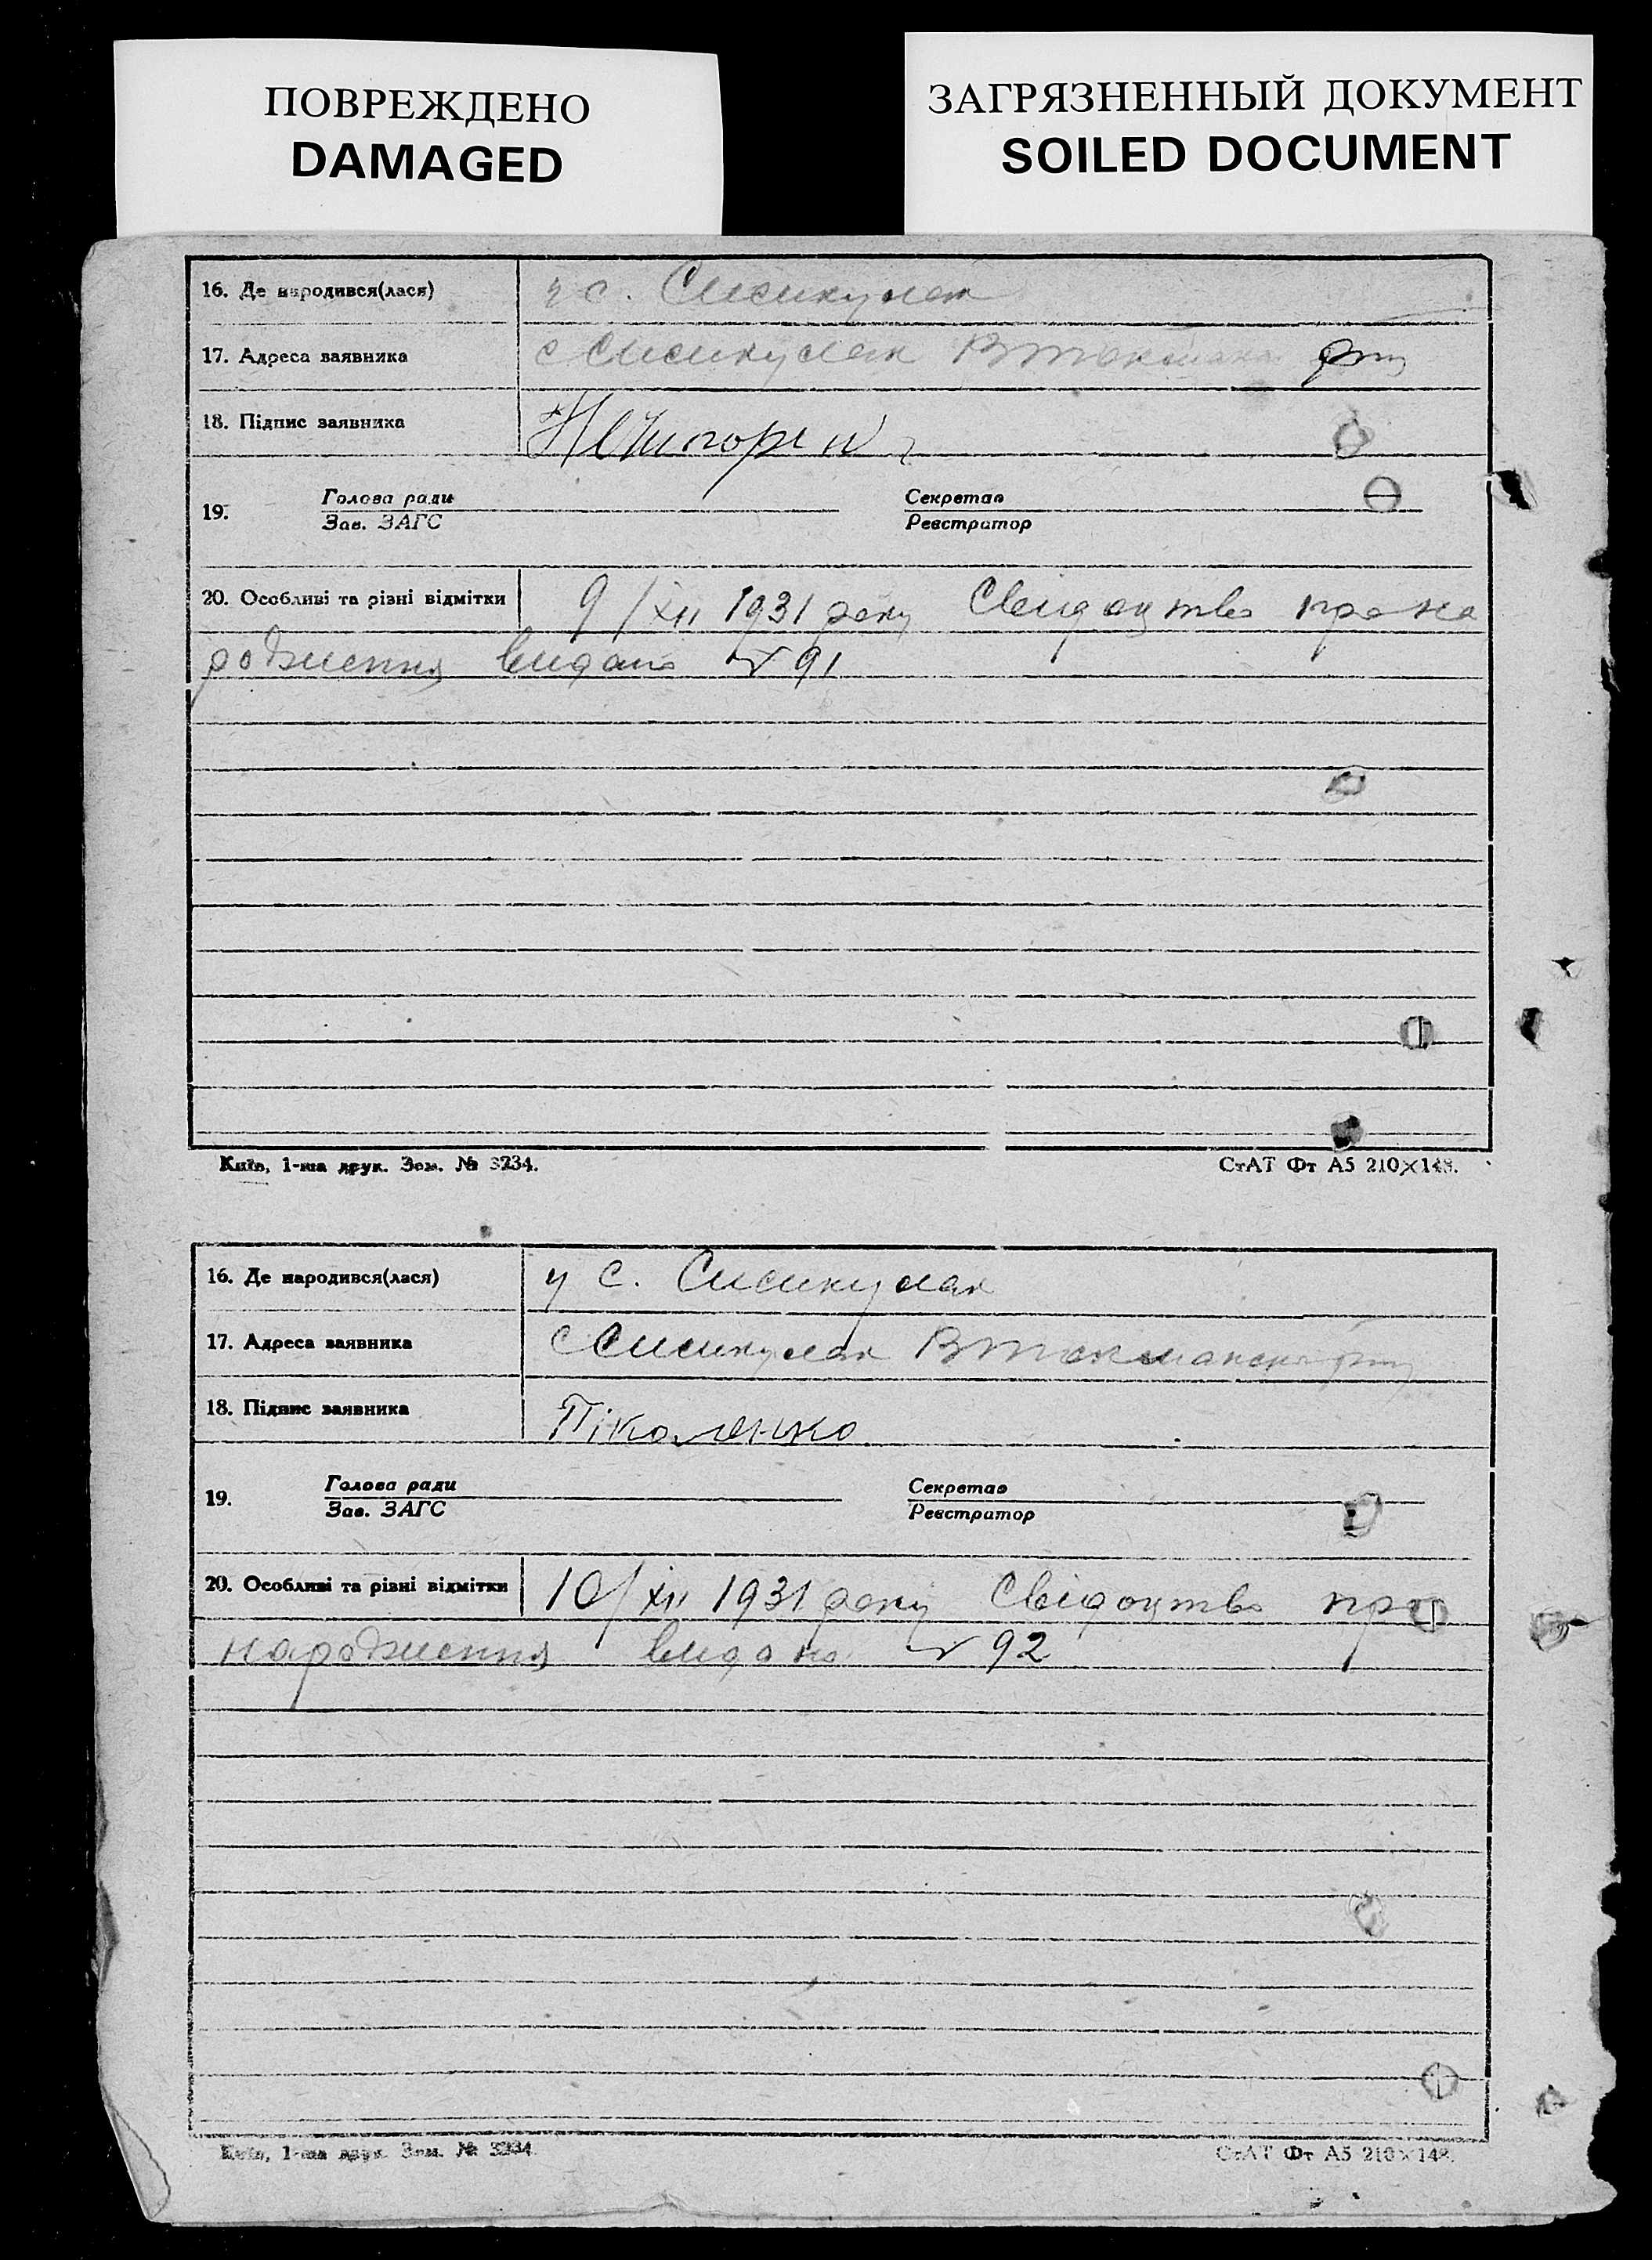 ПОВРЕЖДЕНО
DAMAGED
ЗАГРЯЗНЕННЫЙ ДОКУМЕНТ
SOILED DOCUMENT
16. Де народився(лася) у с. Сисикулак
17. Адреса заявника с Сисикулак В Токмака рну
18. Підпис заявника
19. Голова ради Секретар
Зав. ЗАГС Реєстратор
20. Особливі та різні відмітки 9/XII 1931 року Свидоцтво про на
родження видано № 91
Київ, 1-ша друк. Зам. № 3234. СтАТ Фт А5 210×148.
16. Де народився(лася) у с. Сисикулак
17. Адреса заявника с Сисикулак В Токманск рну
18. Підпис заявника Піколенко
19. Голова ради Секретар
Зав. ЗАГС Реєстратор
20. Особливі та різні відмітки 10/XII 1931 року Свідоцтво про
народження видано № 92
Київ, 1-ша друк. Зам. № 3234 СтАТ Фт А5 210×148.